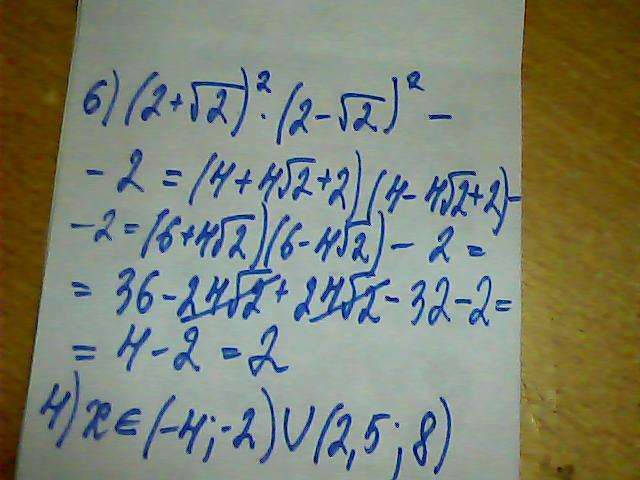 6) (2+√2)². (2-√2)² -
- 2 = (4+4√2+2)(4-4√2+2)-
-2=(6+4√2)(6-4√2) - 2 =
= 36-24√2+24√2-32-2=
= 4-2=2
4) x∈(-4;-2)∪(2,5;8)